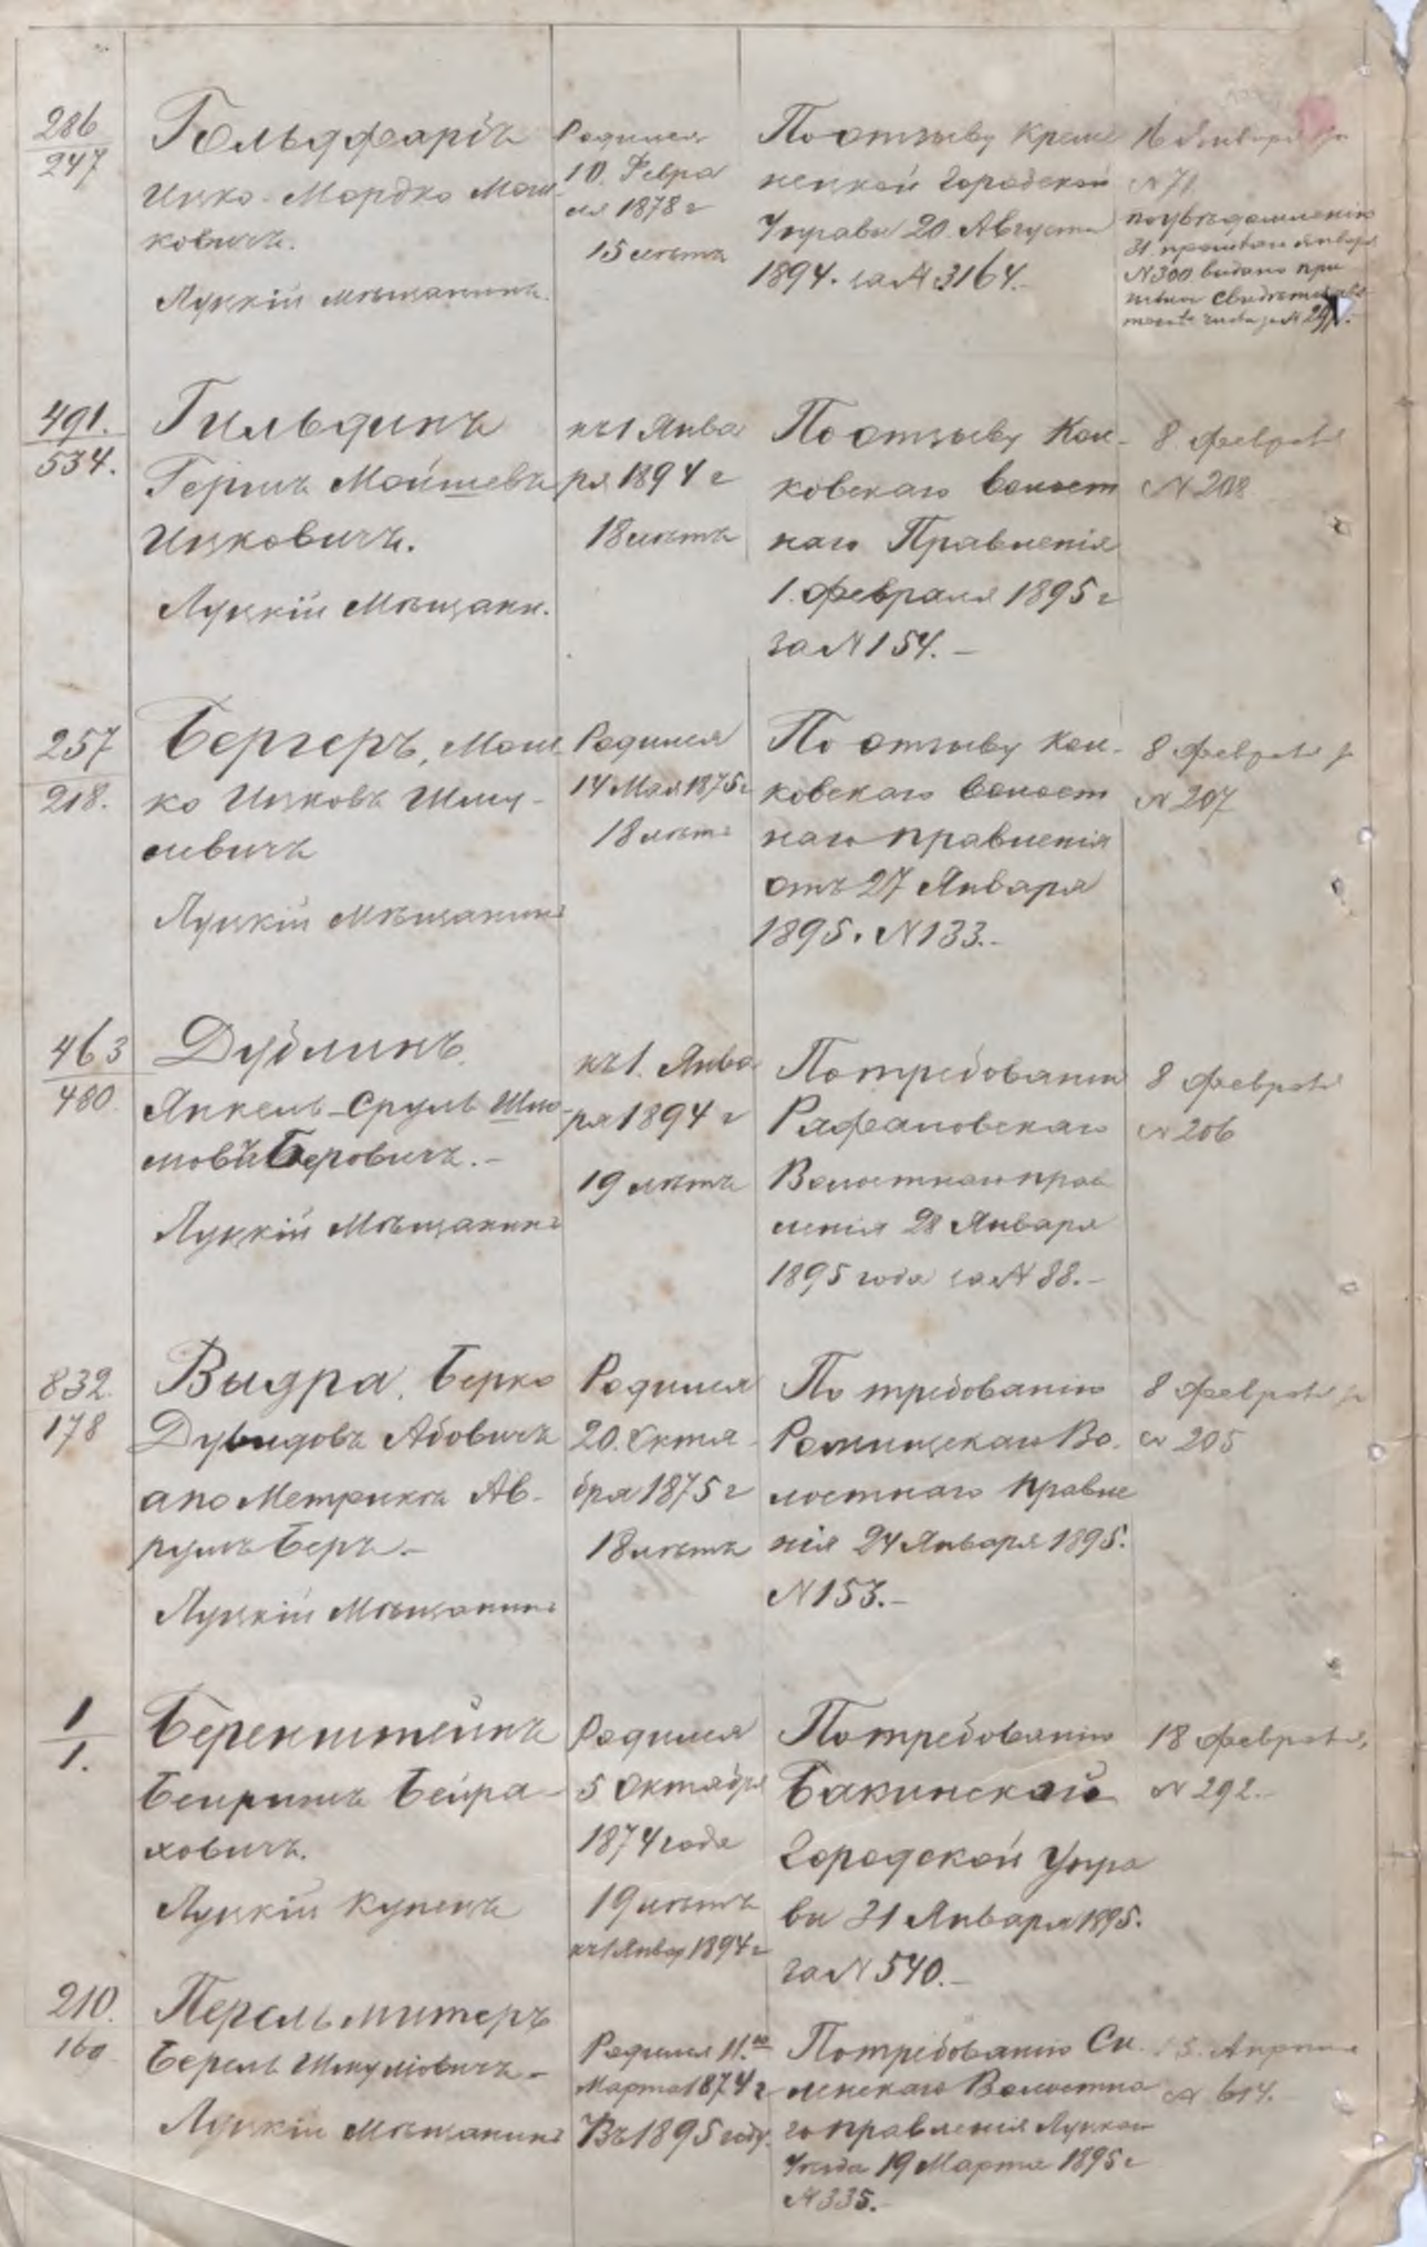 286
247
Гольдфарбъ
Ицко-Мордко Мош-
ковичъ.
Луцкій мѣщанинъ.
Родился
10. Февра
ля 1878 г
15 лѣтъ
По отзыву Креме
нецкой Городской
Управы 20 Августа
1894. за № 3164.-
16 Января за
№ 71.
по увѣдомленію
31
Января
№ 300 выдано при
писное свидѣтель
491.
534.
Гильдинъ
Гершъ Мойшевъ
Ицковичъ.
Луцкій Мѣщани.
къ 1 Янва
ря 1894 г
18 лѣтъ
По отзыву Кол-
ковскаго Волост
наго Правленія
1. Февраля 1895 г
за № 154.-
8 Февраля
№ 208
257
218.
Бергеръ, Мош
ко Ицковъ Шму-
левичъ
Луцкій Мѣщанинъ
Родился
14 Мая 1875 г
18 лѣтъ
По отзыву Кол-
ковскаго Волост
наго правленія
отъ 27 Января
1895. № 133.-
8 Февраля за
№ 207
463
480
Дублинъ
Янкель-Сруль Шло
мовъ Беровичъ.-
Луцкій Мѣщанинъ
къ 1. Янва
ря 1894 г
19 лѣтъ
По требованію
Рафаловскаго
Волостнаго прав
ленія 28 Января
1895 года за № 88.-
8 Февраля
№ 206
832
178
Выдра, Берко
Дувидовъ Абовичъ
а по Метрикѣ Ав-
румъ Беръ.-
Луцкій Мѣщанинъ
Родился
20. Октя-
бря 1875 г
18 лѣтъ
По требованію
Рожищскаго Во-
лостнаго Правле
нія 24 Января 1895.
№ 153.-
8 Февраля за
№ 205
1
1.
Беренштейнъ
Бейришъ Бейра-
ховичъ.
Луцкій Купецъ
Родился
5 Октября
1874 года
19 лѣтъ
къ 1 Января 1894 г
По требованію
Бакинской
Городской Упра
вы 31 Января 1895.
за № 540.-
18 Февраля,
№ 292.-
210.
160
Перельмитеръ
Берель Шмуліовичъ-
Луцкій Мѣщанинъ
Родился 11.го
Марта 1874 г
Въ 1895 году.
По требованію Си
ленскаго Волостна
го правленія Луцкаго
Уѣзда 19 Марта 1895 г
№ 335.-
5. Апрѣля
№ 614.